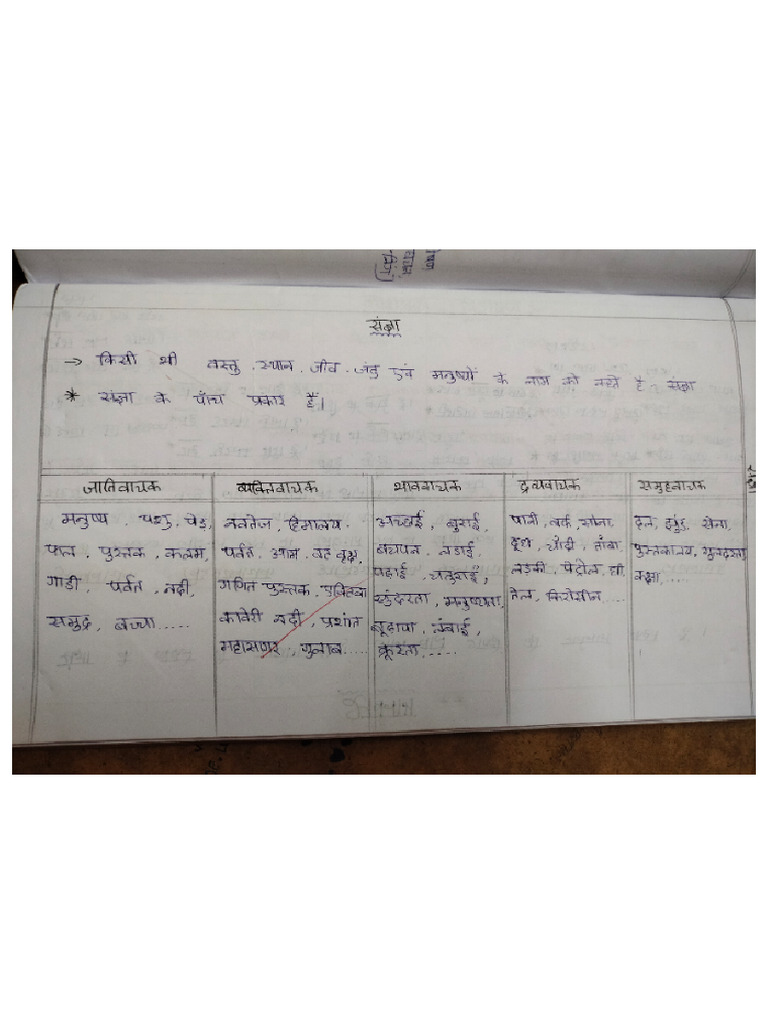 संज्ञा
→ किसी भी वस्तु, स्थान, जीव, जंतु एवं मनुष्यों के नाम को कहते है संज्ञा
* संज्ञा के पाँच प्रकार हैं।
जातिवाचक
मनुष्य, पशु, पेड़,
फल, पुस्तक, कलम,
गाडी, पर्वत, नदी,
समुद्र, बच्चा.....
व्यक्तिवाचक
नवतेज, हिमालय
पर्वत, आम, वट वृक्ष,
गणित पुस्तक,
कावेरी नदी, प्रशांत
महासागर, गुलाब.....
भाववाचक
अच्छाई, बुराई,
बचपन, लडाई,
पढाई, चतुराई,
सुंदरता, मनुष्यता,
बूढापा, लंबाई,
क्रूरता,.....
द्रव्यवाचक
पानी, बर्फ, सोना,
दूध, चाँदी, तांबा,
लडकी, पेट्रोल, घी
तेल, किरोसीन.....
समुहवाचक
दल, झुंड, सेना,
पुस्तकालय, गुलदस्ता
कक्षा,.....